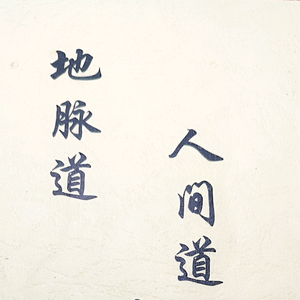 人间道
地脉道